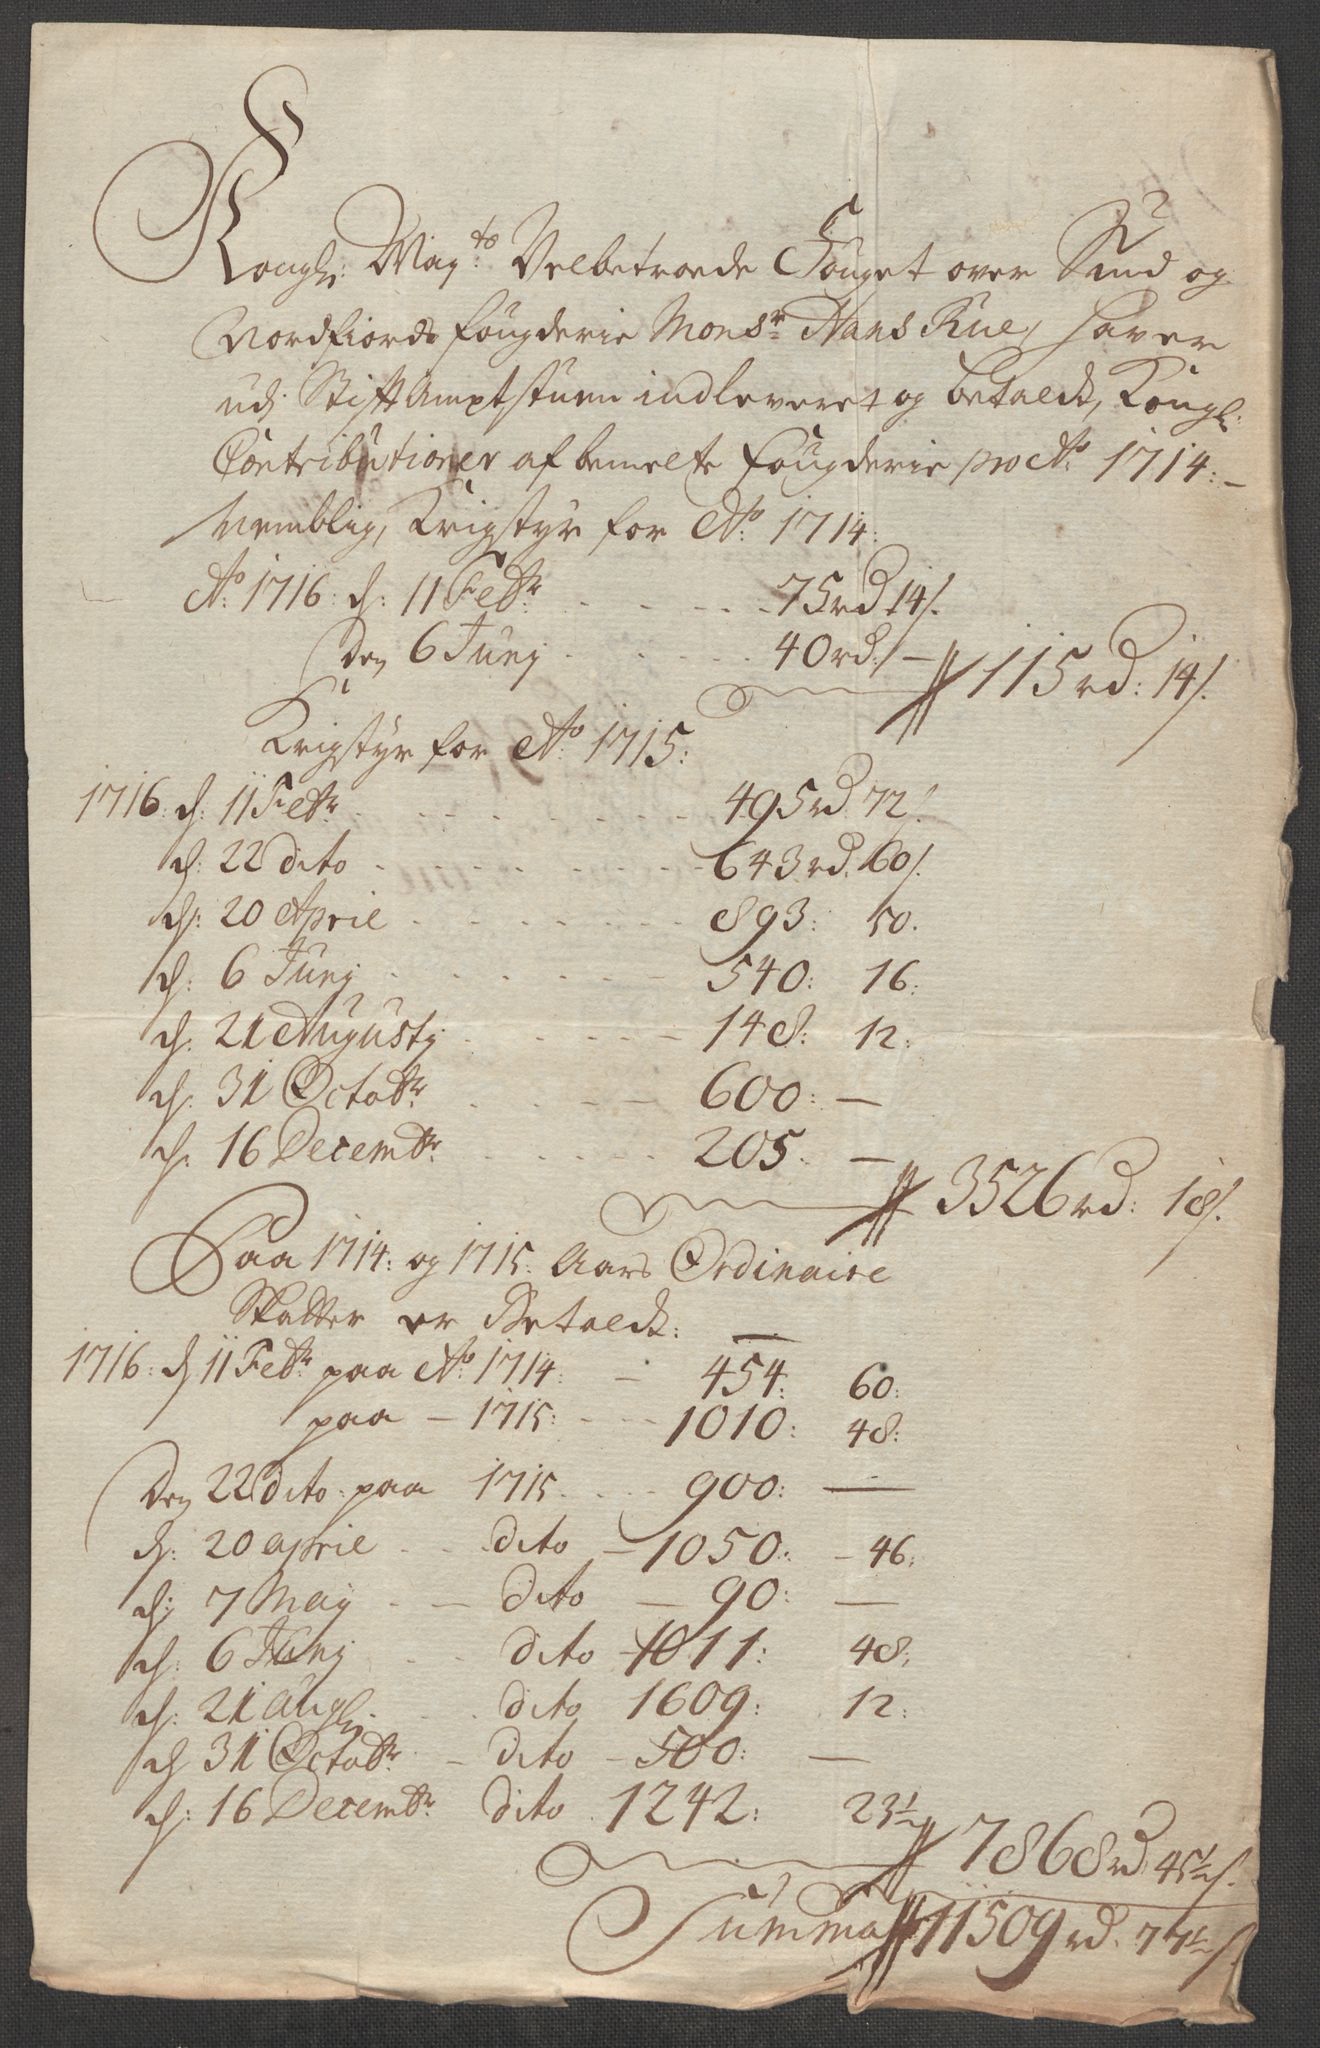 Kongl: May:ts Velbetroede Fouget over Sund og
Nordfiords fougderie Monsr Hans Rue, haver
udj Stifft Amptstuen indleveret og betaldt, Kongl:
Contributioner af bemelte fougderie pro Ao: 1714: –
Nemblig, Krigstyr for Ao: 1714:
Ao: 1716: d: 11 Febr: . . . . 75 rd 14 s.
Den 6 Junj . . . . 40 rd: —
115 rd: 14 s.
Krigstyr for Ao: 1715:
1716: d: 11 Febr: . . . . 495 rd 72 s.
d: 22 dito . . . . 643 rd. 60 s.
d: 20 April . . . . 893: 50.
d: 6 Junj . . . . 540: 16:
d: 21 Augustj . . . . 148: 12:
d: 31 Octobr: . . . . 600: —
d: 16 Decembr: . . . . 205. —
3526 rd: 18 s.
Paa 1714: og 1715. Aars Ordinaire
Skatter er Betaldt:
1716: d 11 Febr: paa Ao: 1714: – 454: 60:
paa – 1715: . . . 1010: 48:
Den 22 dito: paa 1715. . . . 900: —
d: 20 april . . . dito – 1050: – 46:
d: 7 May . . – dito – 90: —
d: 6 Junj . . dito – 1011: 48:
d: 21 Augl: . . dito 1609: 12:
d 31 Octobr: . – dito – 500: —
d: 16 Decembr: dito . 1242: 23½
7868 rd: 45½ s.
Summa 11509 rd. 77½ s.